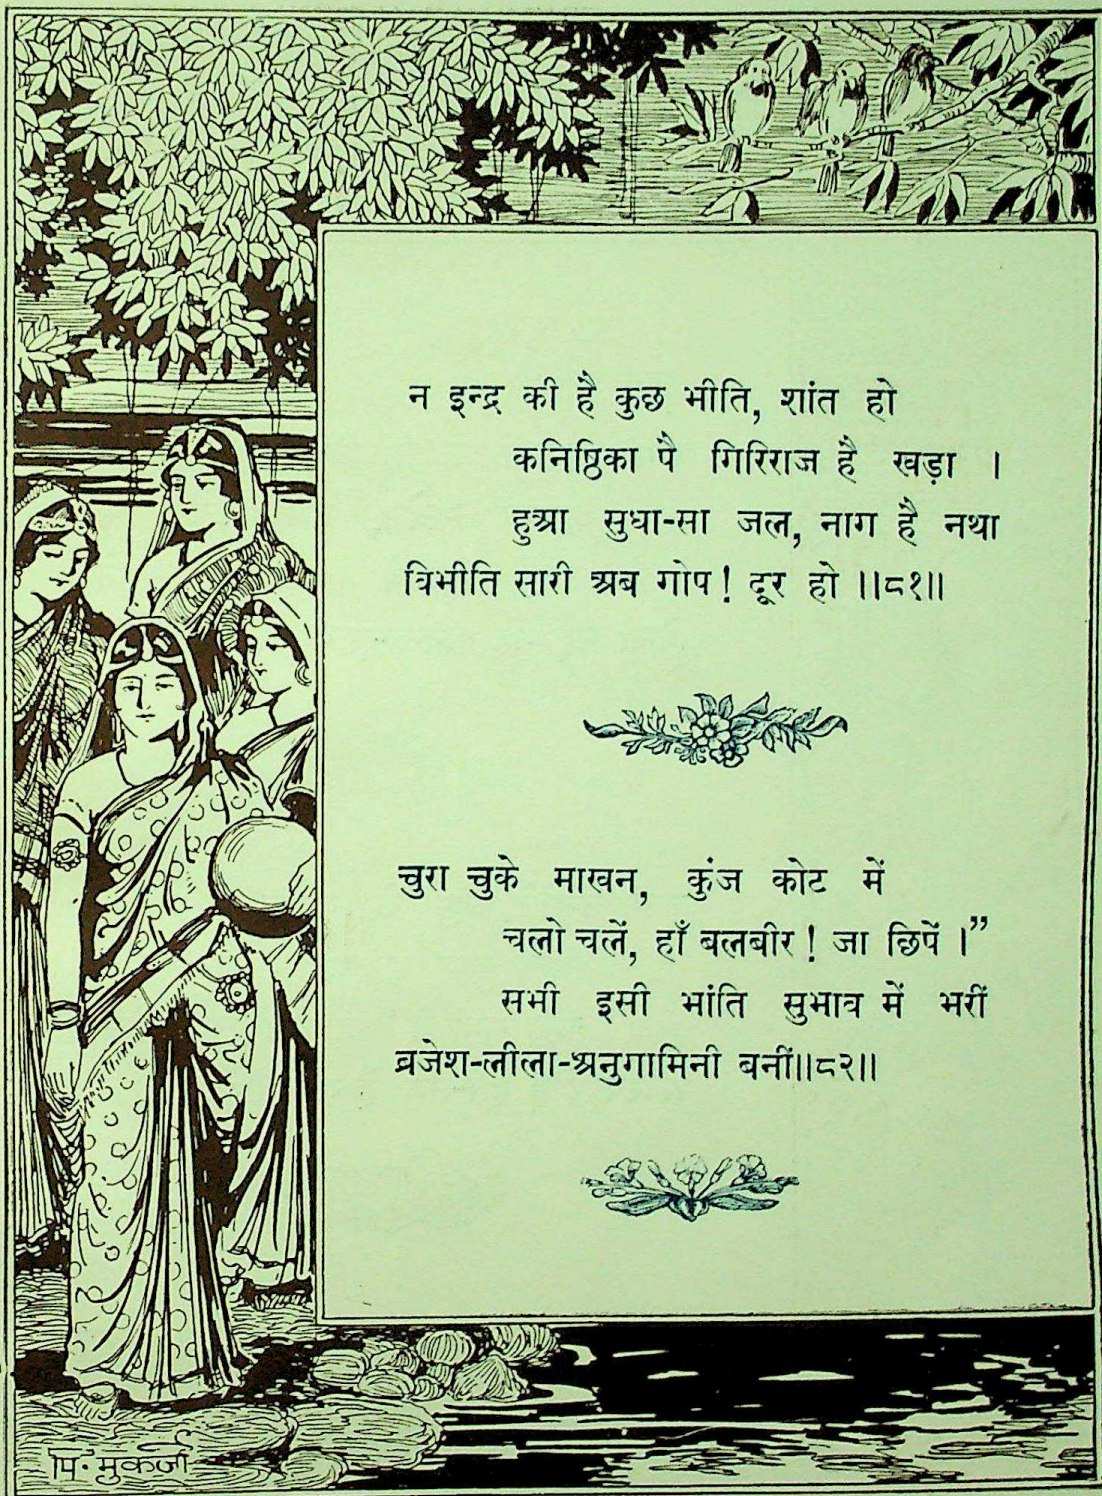 न इन्द्र की है कुछ भीति, शांत हो
कनिष्ठिका पै गिरिराज है खड़ा ।
हुआ सुधा-सा जल, नाग है नथा
विभीति सारी अब गोप! दूर हो ॥८१॥
चुरा चुके माखन, कुंज कोट में
चलो चलें, हाँ बलबीर! जा छिपें ।”
सभी इसी भांति सुभाव में भरीं
ब्रजेश-लीला-अनुगामिनी बनीं॥८२॥
पि. मुकर्जी